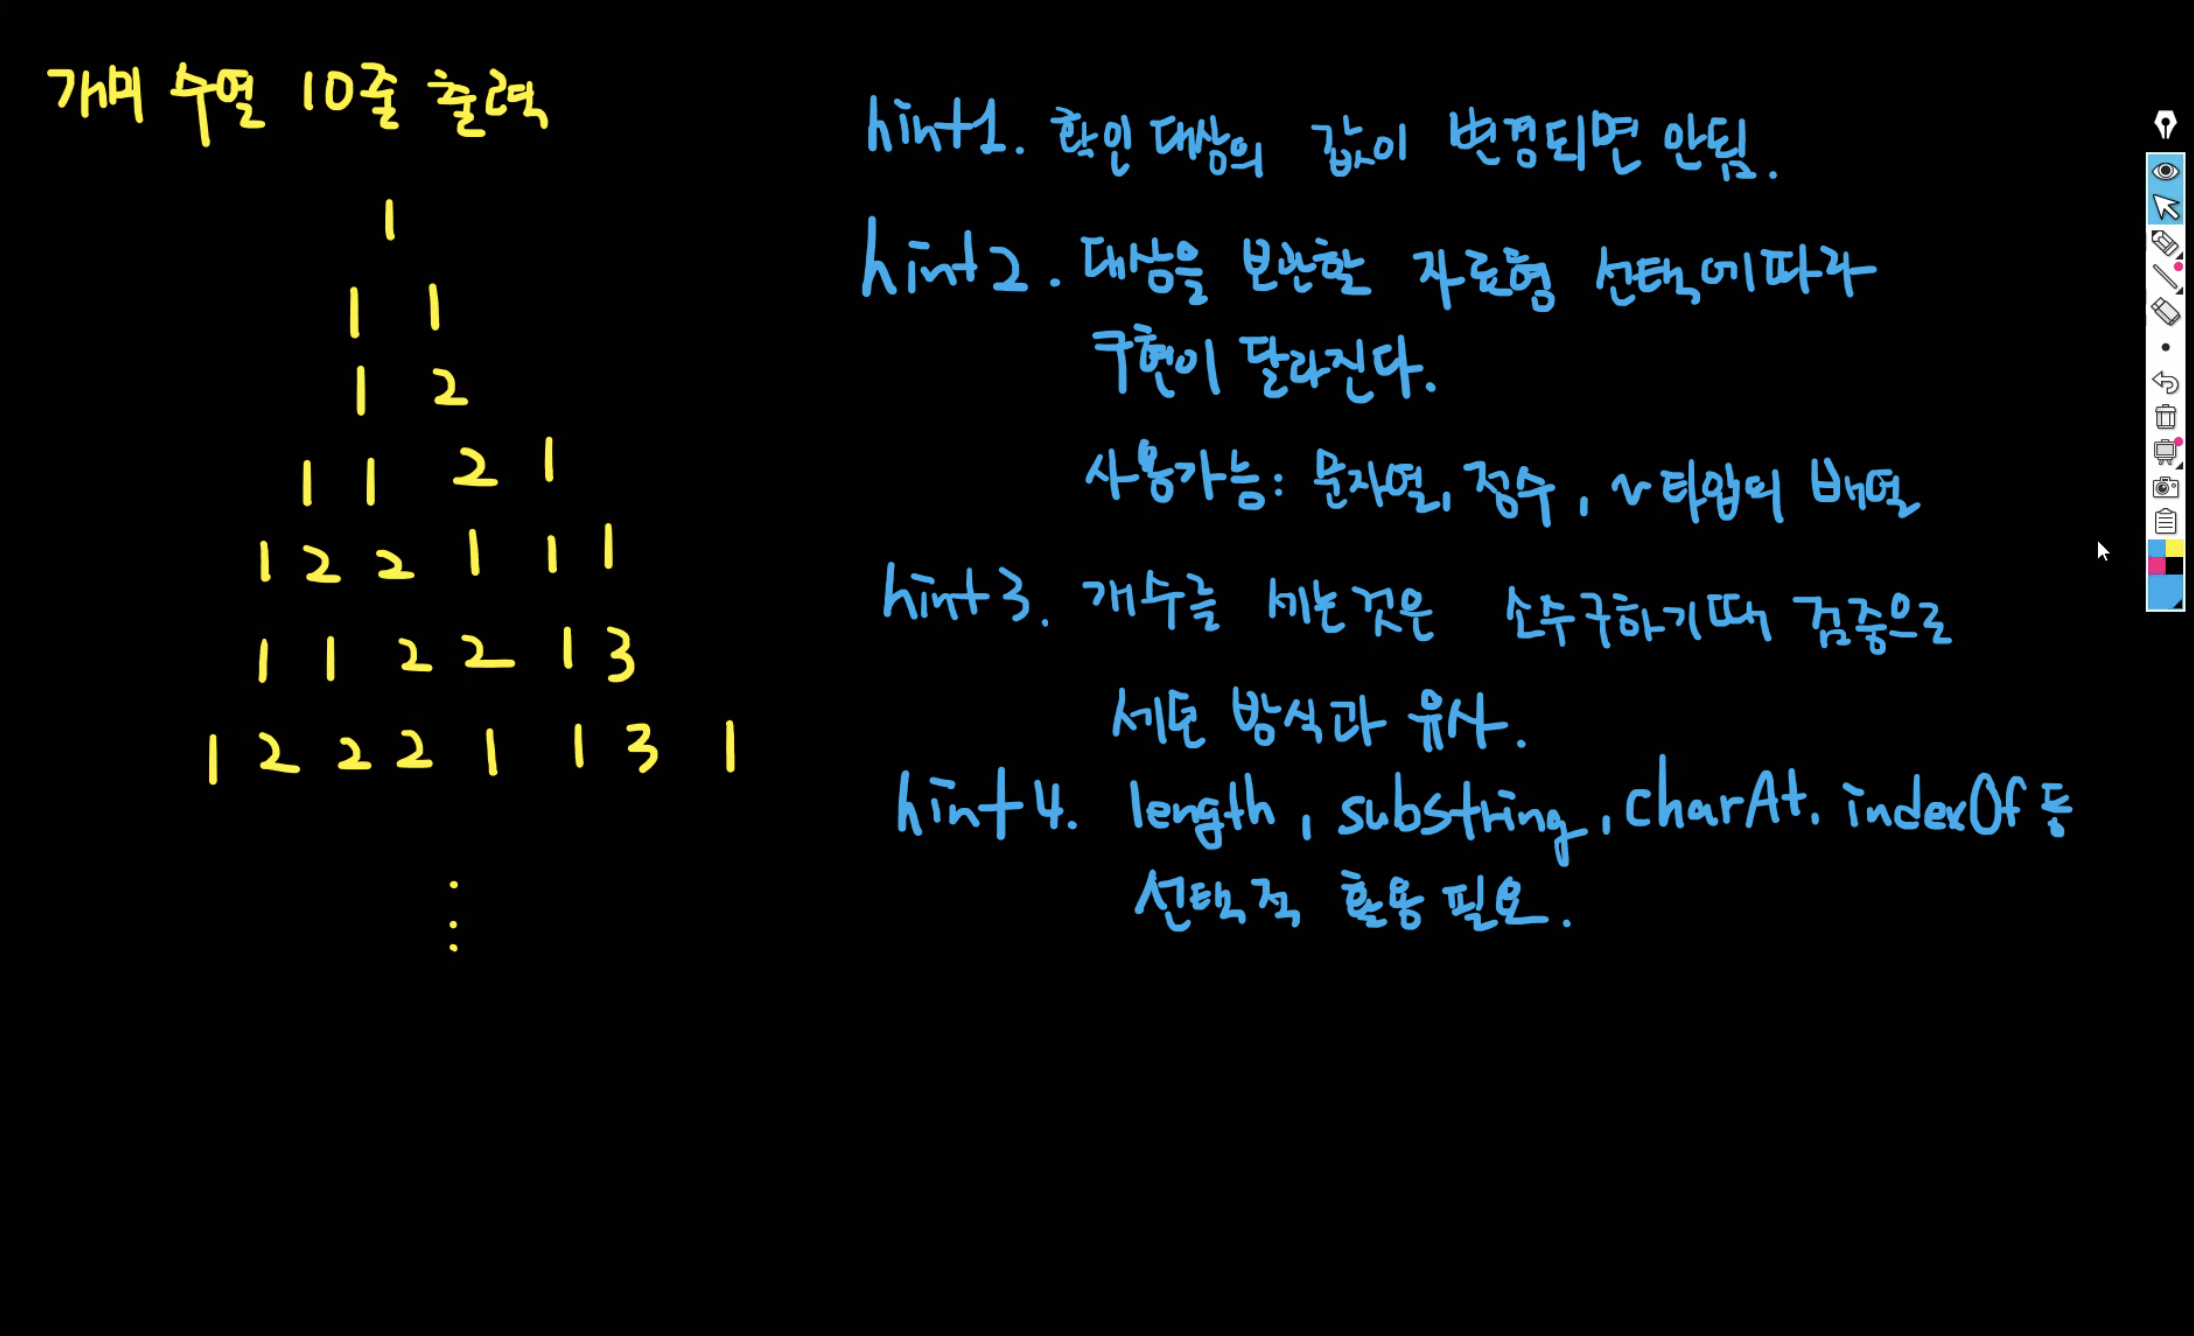 개미 수열 10줄 출력
1
1 1
1 2
1 1 2 1
1 2 2 1 1 1
1 1 2 2 1 3
1 2 2 2 1 1 3 1
⋮
hint1. 확인 대상의 값이 변경되면 안됨.
hint2. 대상을 보관할 자료형 선택에 따라
구현이 달라진다.
사용가능: 문자열, 정수, ~타입의 배열
hint3. 개수를 세는것은 소수구하기때 검증으로
세던 방식과 유사.
hint4. length, substring, charAt, indexOf 등
선택적 활용 필요.